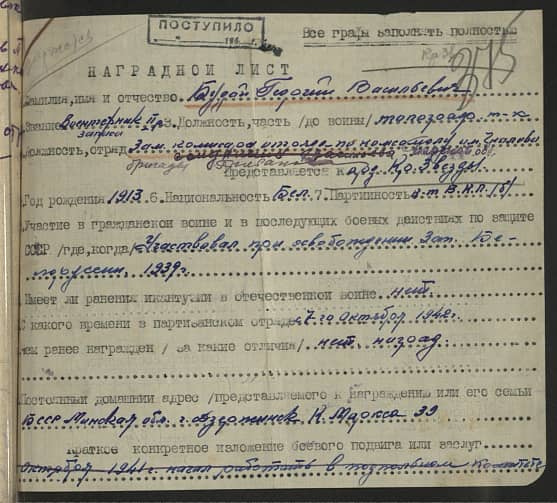 ПОСТУПИЛО
Все графы заполнять полностью
НАГРАДНОЙ ЛИСТ
Фамилия, имя и отчество Будай Георгий Васильевич
Звание запаса 3. Должность, часть /до войны/
Должность, отряд Зам. комиссара по комсомолу
бригады
Представляется к орд. Кр. Звезды
Год рождения 1913. 6. Национальность Бел. 7. Партийность ВКП/б/
Участие в гражданской войне и в последующих боевых действиях по защите
СССР /где, когда/ Участвовал при освобождении Зап. Бе-
лоруссии 1939г.
Имеет ли ранения и контузии в отечественной войне нет.
С какого времени в партизанском отряде 7-го октября 1942г.
Чем ранее награжден /за какие отличия/ нет наград.
Постоянный домашний адрес /представляемого к награждению или его семьи
БССР Минская обл. г. Дзержинск К. Маркса 39
Краткое конкретное изложение боевого подвига или заслуг
октября 1941г. начал работать в подпольном комитете